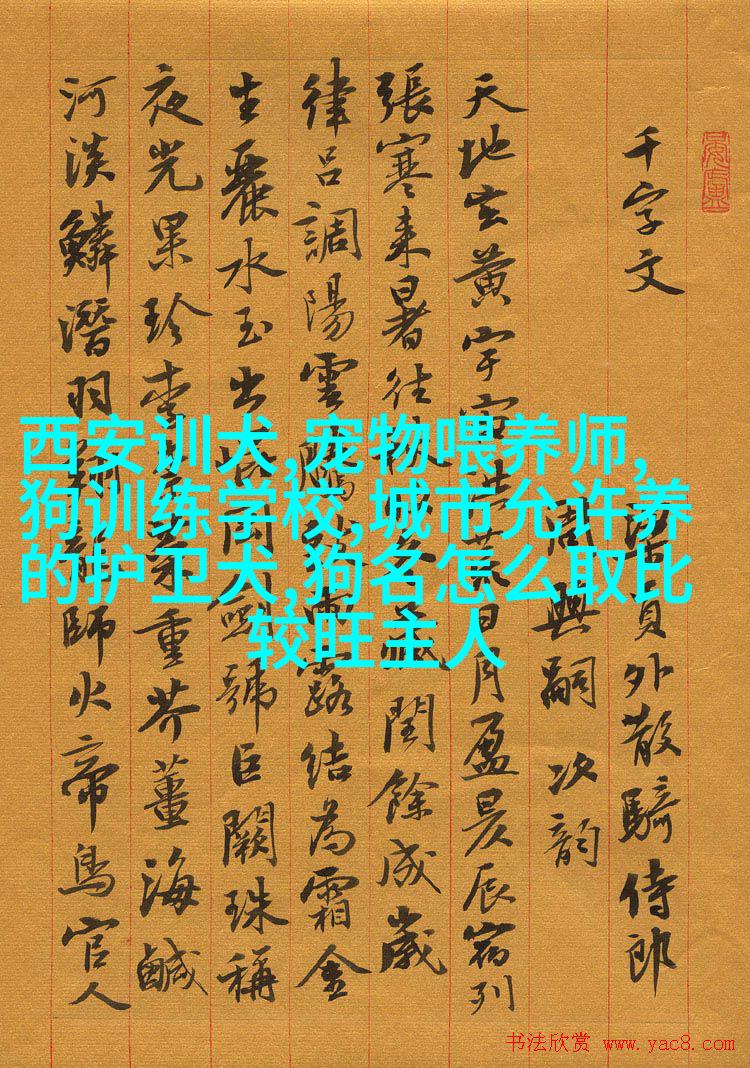 千字文
梁員外散騎侍郎
周興嗣次韵
天地玄黄宇宙洪荒日月盈昃辰宿列
張寒来暑往秋收冬藏閏餘成歲
律吕調陽雲騰致雨露结為霜金
生麗水玉出崐岡劍號巨闕珠稱
夜光果珍李柰菜重芥薑海鹹
河淡鱗潜羽翔龍師火帝鳥官人
西安训犬,宠物喂养师,
狗训练学校,城市允许养
的护卫犬,狗名怎么取比
较旺主人
书法欣赏 www.yac8.com